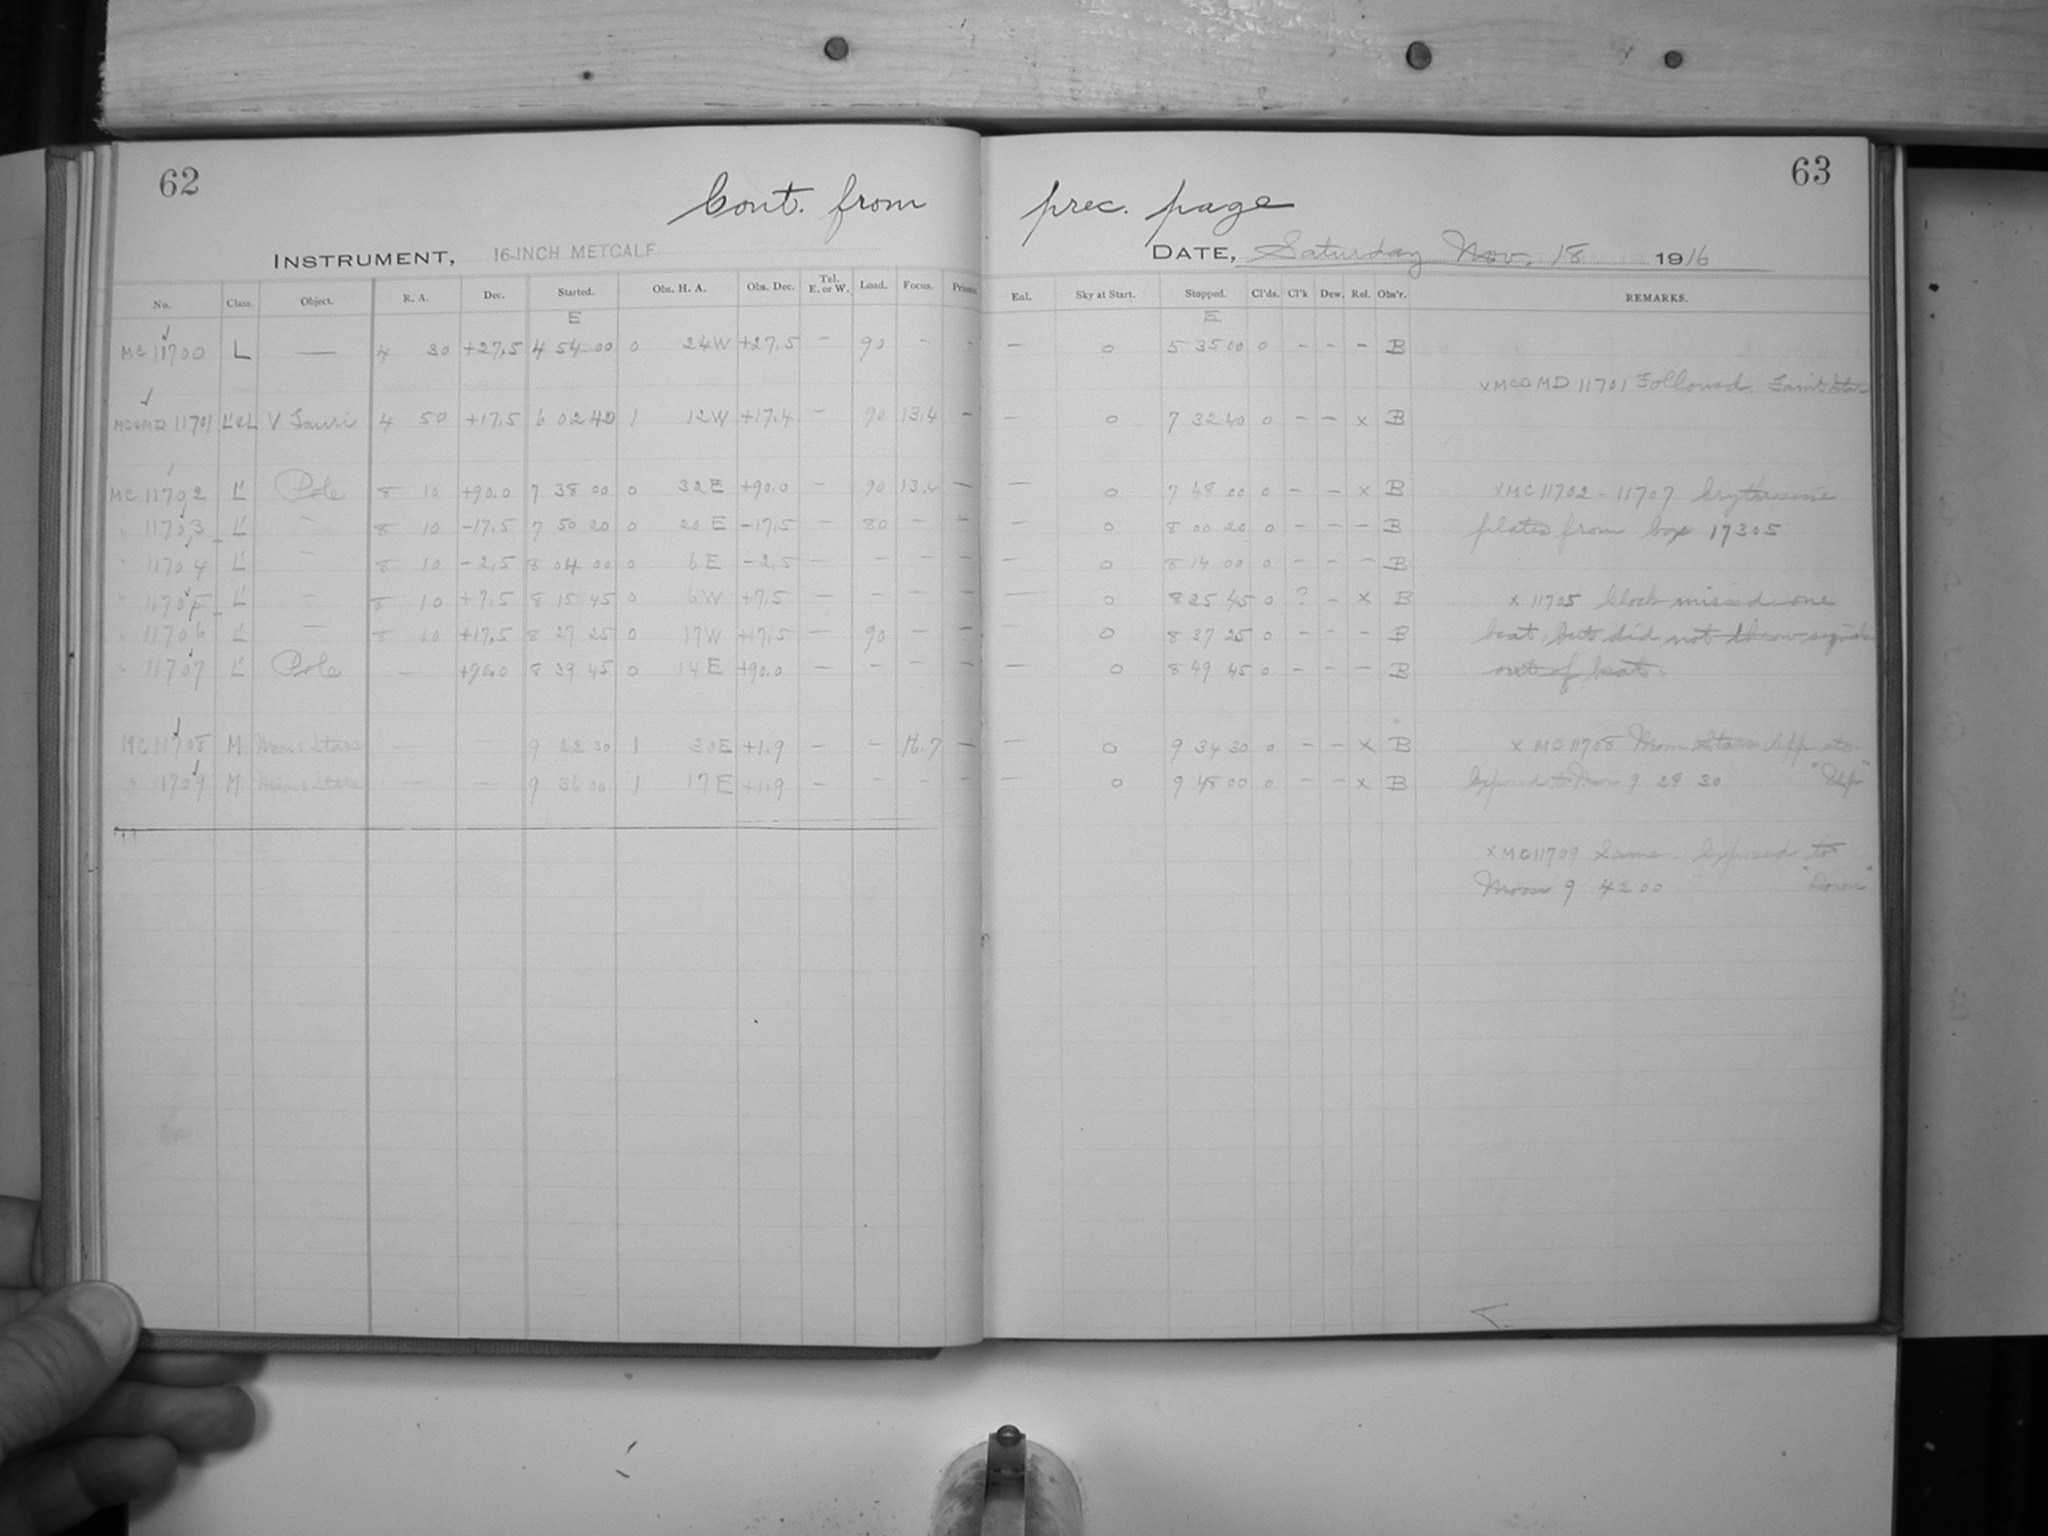 62
63
Cont. from prec. page
INSTRUMENT, 16-INCH METCALF. DATE, Saturday Nov. 18 1916
No. Class. Object. R. A. Dec. Started. Obs. H. A. Obs. Dec. Tel. E. or W. Load. Focus. Enl. Sky at Start. Stopped. Cl'ds. Cl'k Dew. Ref. Obs'r. REMARKS.
E E
MC 11700 L — 4 30 +27.5 4 54 00 0 24W +27.5 — 90 - - — 0 5 35 00 0 - - - B
x MC & MD 11701 Followed. Faint Star
MC & MD 11701 L'&L V Tauri 4 50 +17.5 6 02 40 1 12W +17.4 — 90 13.4 — — 0 7 32 40 0 - - x B
MC 11702 L' Pole 8 10 +90.0 7 38 00 0 32 E +90.0 — 90 13.4 — — 0 7 48 00 0 - - x B x MC 11702 - 11707 Erythrosine
" 11703 L' — 8 10 -17.5 7 50 20 0 20 E -17.5 — 80 - - — 0 8 00 20 0 - - - B plates from box 17305
" 11704 L' — 8 10 -2.5 8 04 00 0 6 E -2.5 — - - - — 0 8 14 00 0 - - - B
" 11705 L' — 8 10 +7.5 8 15 45 0 6 W +7.5 — - - - — 0 8 25 45 0 ? - x B x 11705 Clock missed one
" 11706 L' — 8 10 +17.5 8 27 25 0 17W +17.5 — 90 - - — 0 8 37 25 0 - - - B beat, but did not throw signals
" 11707 L' Pole — +90.0 8 39 45 0 14 E +90.0 — - - - — 0 8 49 45 0 - - - B out of beat.
MC 11708 M Moon & Stars — — 9 22 30 1 30E +1.9 — - 16.7 — — 0 9 34 30 0 - - x B x MC 11708 Moon Stars App. etc.
" 11709 M Moon & Stars — — 9 36 00 1 17 E +1.9 — - - - — 0 9 48 00 0 - - x B Exposed to Moon 9 28 30 "Up"
x MC 11709 Same. Exposed to
Moon 9 42 00 "Down"